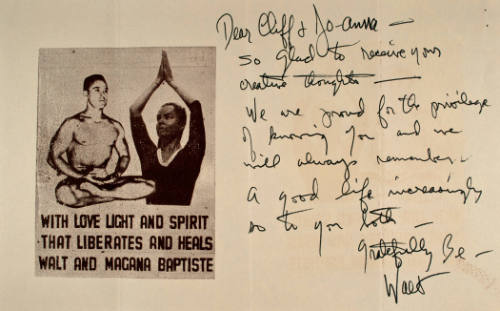 Dear Cliff & Jo-anna —
so glad to receive your
creative thoughts —
We are proud for the privilege
of knowing you and we
will always remember —
A good life increasingly
so to you both —
Gratefully Be —
Walt
WITH LOVE LIGHT AND SPIRIT
THAT LIBERATES AND HEALS
WALT AND MAGANA BAPTISTE